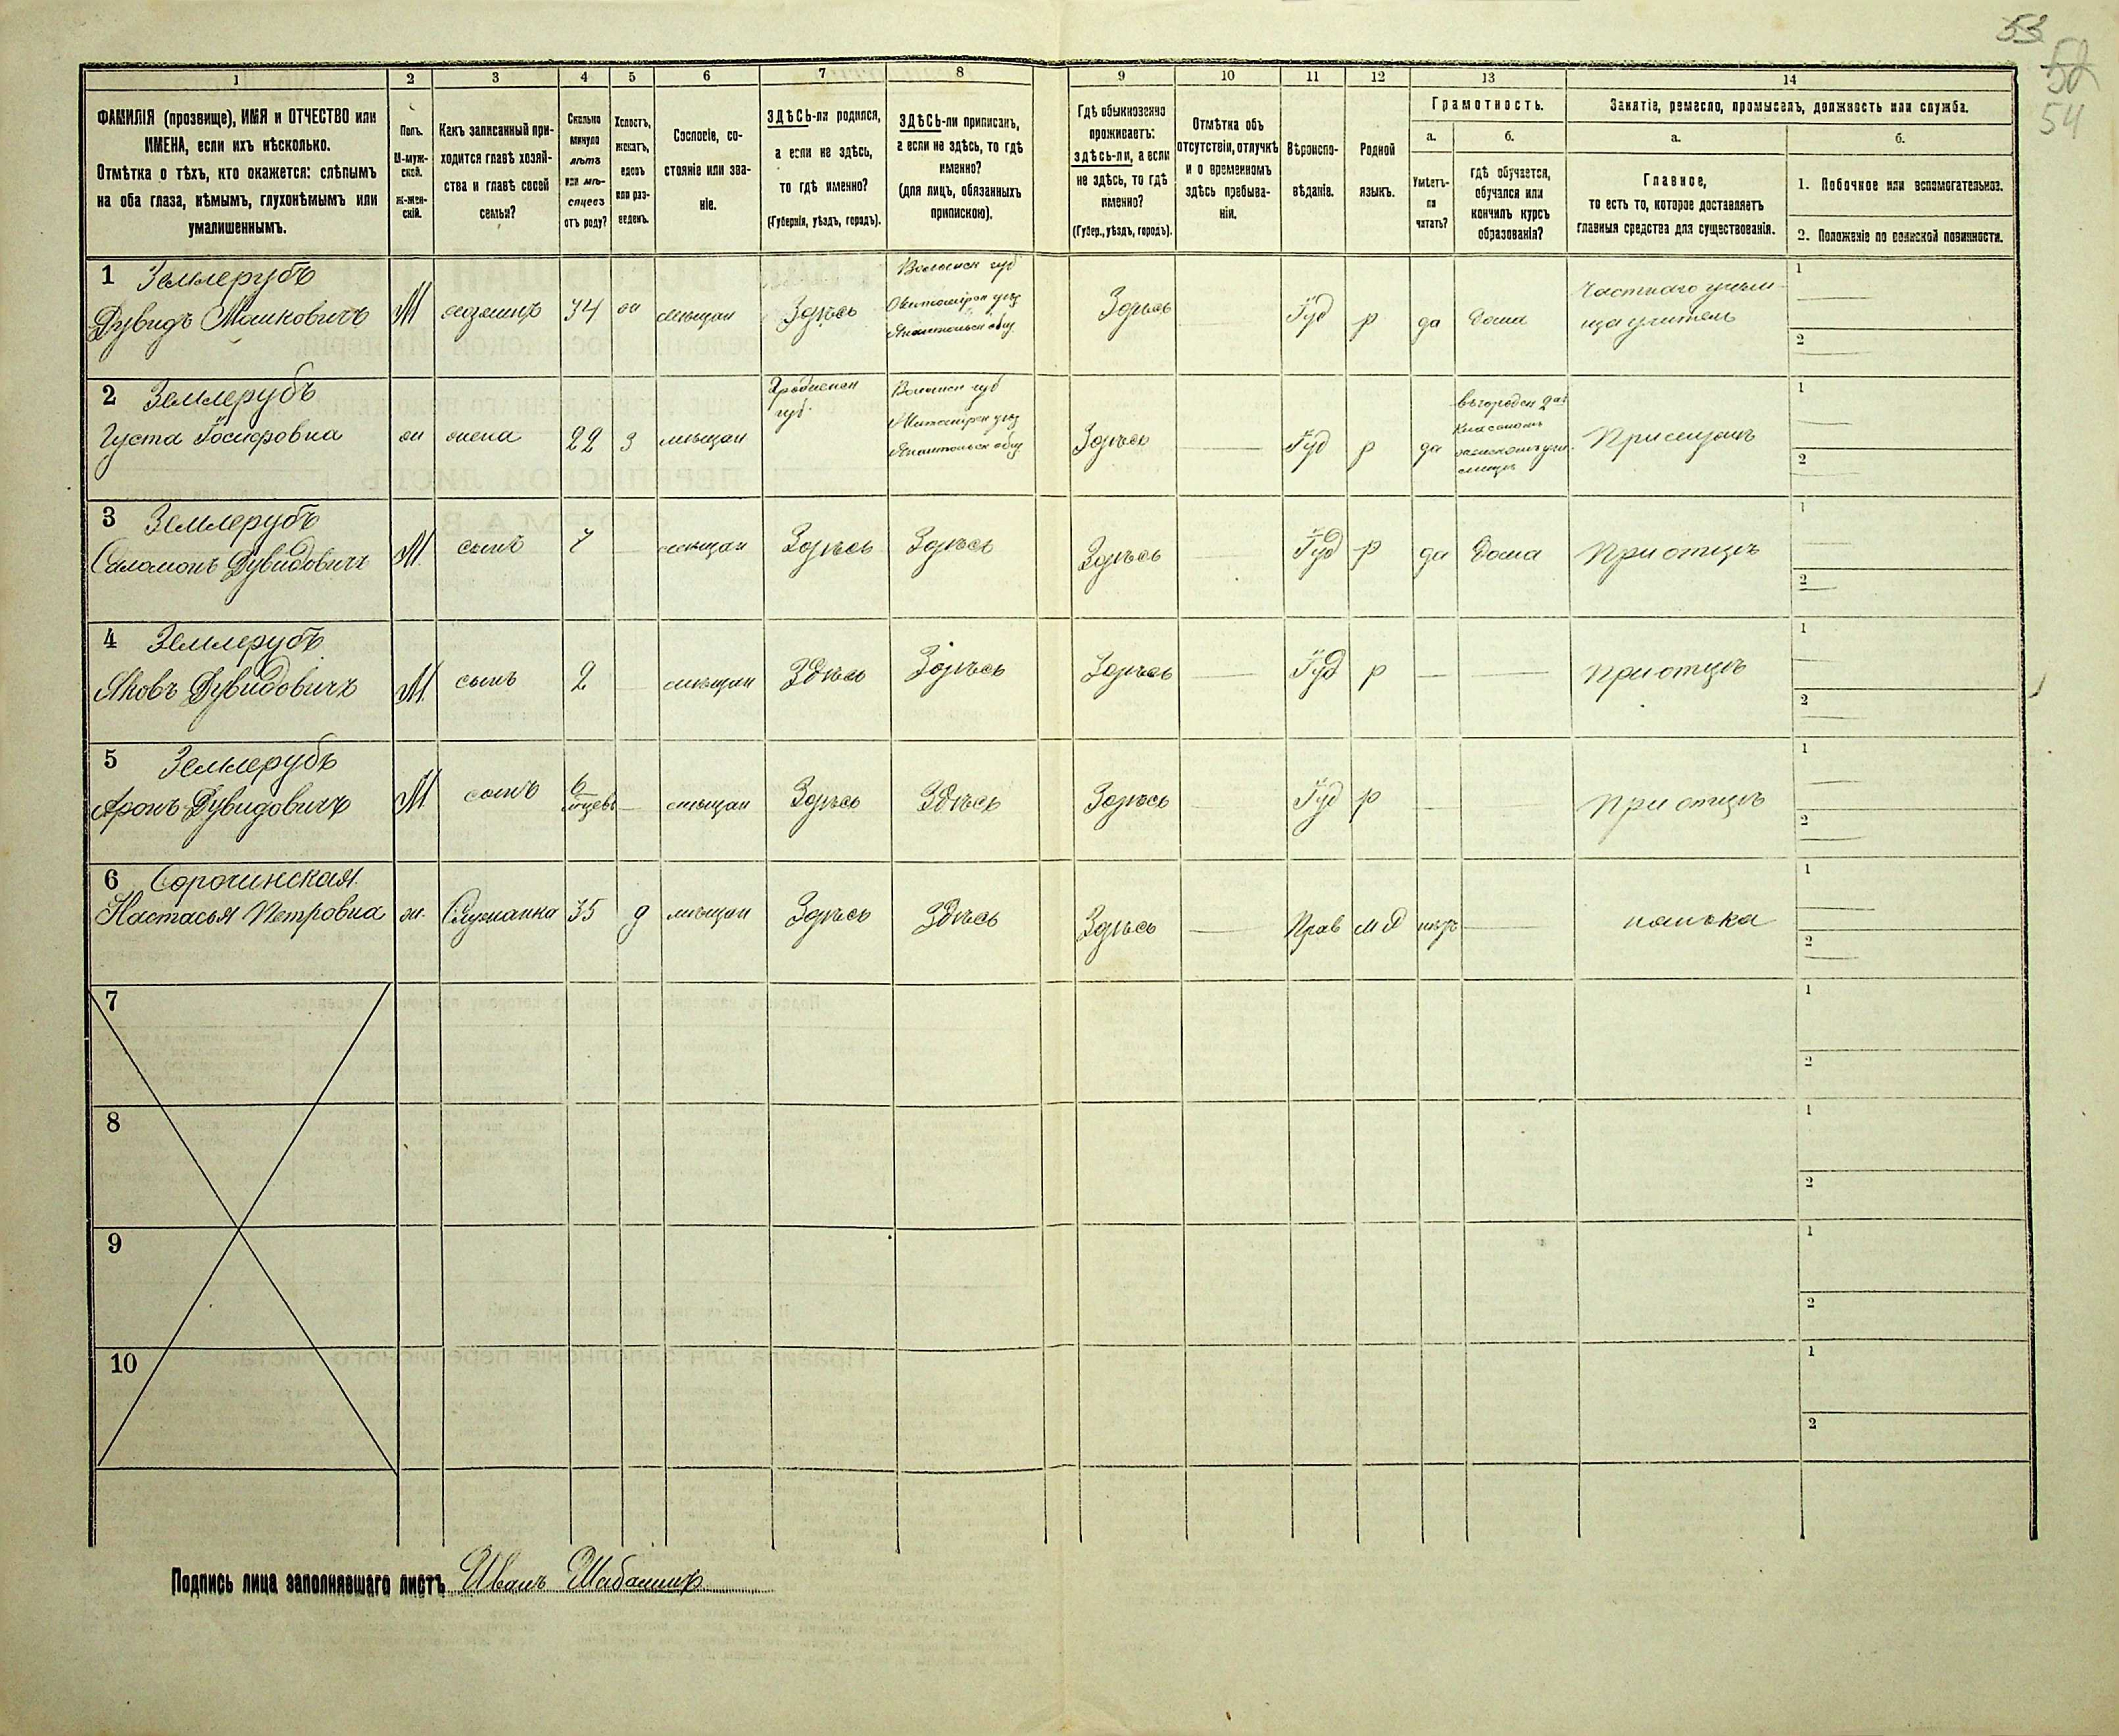 53
52
54
1
2
3
4
5
6
7
8
9
10
11
12
13
14
ФАМИЛІЯ (прозвище), ИМЯ и ОТЧЕСТВО или
ИМЕНА, если ихъ нѣсколько.
Отмѣтка о тѣхъ, кто окажется: слѣпымъ
на оба глаза, нѣмымъ, глухонѣмымъ или
умалишеннымъ.
Полъ.
М-муж-
ской.
ж-жен-
скій.
Какъ записанный при-
ходится главѣ хозяй-
ства и главѣ своей
семьи?
Сколько
минуло
лѣтъ
или мѣ-
сяцевъ
отъ роду?
Холостъ,
женатъ,
вдовъ
или раз-
веденъ.
Сословіе, со-
стояніе или зва-
ніе.
ЗДѢСЬ-ли родился,
а если не здѣсь,
то гдѣ именно?
(Губернія, уѣздъ, городъ).
ЗДѢСЬ-ли приписанъ,
а если не здѣсь, то гдѣ
именно?
(для лицъ, обязанныхъ
припискою).
Гдѣ обыкновенно
проживаетъ:
здѣсь-ли, а если
не здѣсь, то гдѣ
именно?
(Губер., уѣздъ, городъ).
Отмѣтка объ
отсутствіи, отлучкѣ
и о временномъ
здѣсь пребыва-
ніи.
Вѣроиспо-
вѣданіе.
Родной
языкъ.
Грамотность.
а.
Умѣетъ-
ли
читать?
б.
гдѣ обучается,
обучался или
кончилъ курсъ
образованія?
Занятіе, ремесло, промыселъ, должность или служба.
а.
Главное,
то есть то, которое доставляетъ
главныя средства для существованія.
б.
1. Побочное или вспомогательное.
2. Положеніе по воинской повинности.
1 Землерубъ
Дувидъ Мошковичъ
М хозяинъ 34 ж мѣщан Здѣсь
Волынск губ
Житомірск уѣз
Здѣсь Іуд р да дома
Частнаго учили-
ща учитель
1
2
2 Землерубъ
Густа Іосифовна
ж жена 22 з мѣщан
Гродненск
губ.
Волынск губ
Житомірск уѣз
Здѣсь Іуд р да
въ городск 2хъ
классномъ
женскомъ учи-
лищѣ
При мужѣ
1
2
3 Землерубъ
Соломонъ Дувидовичъ
М. сынъ 7 мѣщан Здѣсь Здѣсь Здѣсь Іуд р да дома При отцѣ
1
2
4 Землерубъ
Яковъ Дувидовичъ
М. сынъ 2 мѣщан Здѣсь Здѣсь Здѣсь Іуд р При отцѣ
1
2
5 Землерубъ
Аронъ Дувидовичъ
М сынъ 6 мѣщан Здѣсь Здѣсь Здѣсь Іуд р При отцѣ
1
2
6 Сорочинская
Настасья Петровна
ж. Служанка 35 д мѣщан Здѣсь Здѣсь Здѣсь Прав м р нѣтъ нянька
1
2
7
1
2
8
1
2
9
1
2
10
1
2
Подпись лица заполнявшаго листъ Иванъ